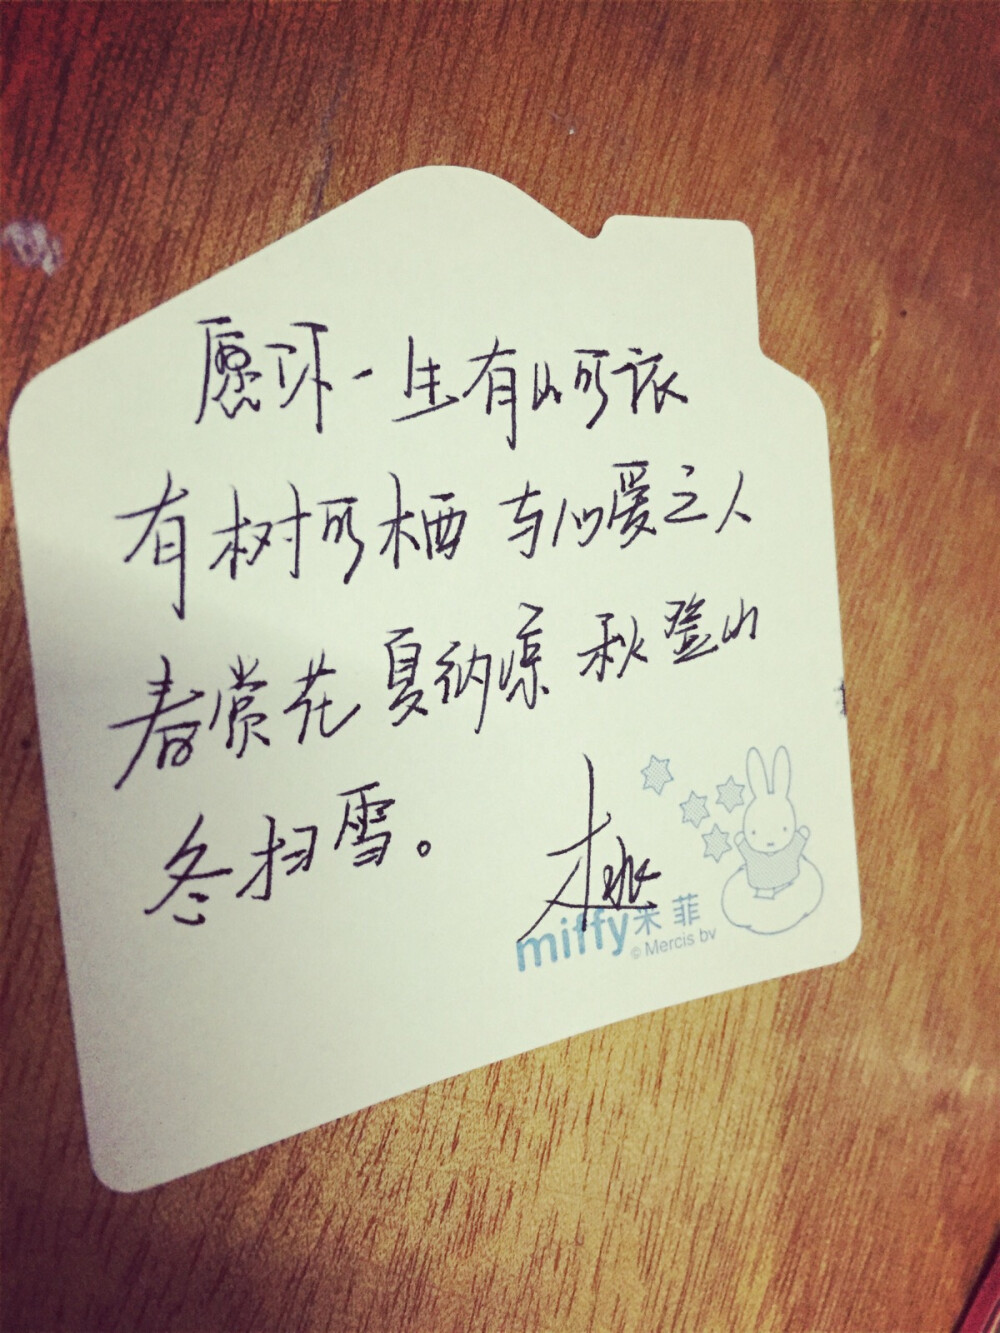 愿环一生有山可依
有树可栖 与心爱之人
春赏花 夏纳凉 秋登山
冬扫雪。
miffy米菲
© Mercis bv